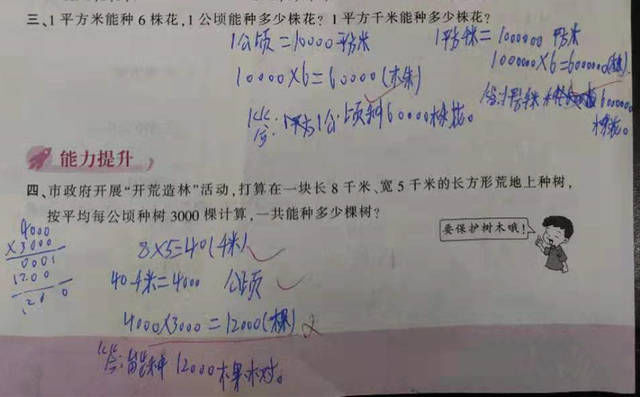 三、1平方米能种6株花,1公顷能种多少株花? 1平方千米能种多少株花?
1公顷=10000平方米
10000×6=60000(株)
答:1公顷种60000株花。
1平方千米=1000000平方米
1000000×6=6000000(株)
能力提升
四、市政府开展“开荒造林”活动,打算在一块长8千米、宽5千米的长方形荒地上种树,
按平均每公顷种树3000棵计算,一共能种多少棵树?
要保护树木哦!
4000
×3000
8×5=40(千米)
40千米=4000 公顷
4000×3000=12000(棵)
答:能种12000棵树。